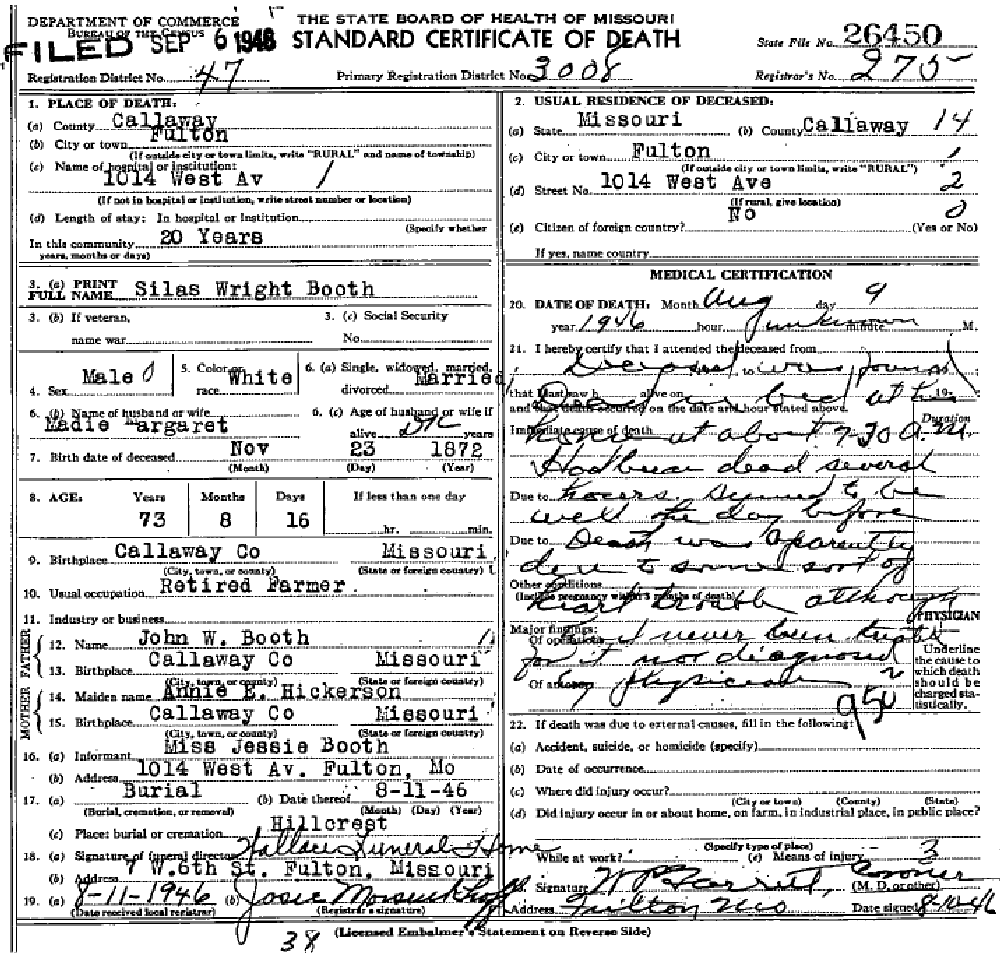 DEPARTMENT OF COMMERCE
BUREAU OF THE CENSUS
THE STATE BOARD OF HEALTH OF MISSOURI
STANDARD CERTIFICATE OF DEATH
FILED SEP 6 1946
State File No. 26450
Registration District No. 47
Primary Registration District No. 3008
Registrar's No. 275
1. PLACE OF DEATH:
(a) County Callaway
(b) City or town Fulton
(If outside city or town limits, write "RURAL" and name of township)
(c) Name of hospital or institution:
1014 West Av 1
(If not in hospital or institution, write street number or location)
(d) Length of stay: In hospital or institution
(Specify whether
In this community 20 Years
years, months or days)
2. USUAL RESIDENCE OF DECEASED:
(a) State Missouri (b) County Callaway 14
(c) City or town Fulton 1
(If outside city or town limits, write "RURAL")
(d) Street No. 1014 West Ave 2
(If rural, give location)
No 0
(e) Citizen of foreign country? (Yes or No)
If yes, name country
3. (a) PRINT FULL NAME Silas Wright Booth
3. (b) If veteran, name war
3. (c) Social Security No.
4. Sex Male 0
5. Color or race White
6. (a) Single, widowed, married, divorced Married
6. (b) Name of husband or wife
Madie Margaret
6. (c) Age of husband or wife if alive DK years
7. Birth date of deceased Nov 23 1872
(Month) (Day) (Year)
8. AGE: Years Months Days If less than one day
73 8 16 hr. min.
9. Birthplace Callaway Co Missouri
(City, town, or county) (State or foreign country)
10. Usual occupation Retired Farmer
11. Industry or business
FATHER
12. Name John W. Booth
13. Birthplace Callaway Co Missouri
(City, town, or county) (State or foreign country)
MOTHER
14. Maiden name Annie E. Hickerson
15. Birthplace Callaway Co Missouri
(City, town, or county) (State or foreign country)
16. (a) Informant Miss Jessie Booth
(b) Address 1014 West Av. Fulton, Mo
17. (a) Burial (b) Date thereof 8-11-46
(Burial, cremation, or removal) (Month) (Day) (Year)
(c) Place: burial or cremation Hillcrest
18. (a) Signature of funeral director Wallace Funeral Home
(b) Address 7 W.6th St. Fulton, Missouri
19. (a) 8-11-1946 (b) Josie
(Date received local registrar) (Registrar's signature)
MEDICAL CERTIFICATION
20. DATE OF DEATH: Month Aug day 9
year 1946 hour unknown minute M.
21. I hereby certify that I attended the deceased from
Deceased was found
that I last saw h alive on 19
Dead in bed at his
and that death occurred on the date and hour stated above.
Immediate cause of death Duration
home at about 7-30 A.M.
Had been dead several
Due to hours. Seemed to be
well the day before
Due to Death was aparently
due to some sort of
Other conditions
(Include pregnancy within 3 months of death)
heart trouble although
PHYSICIAN
Major findings:
Of operations had never been treated
for it nor diagnosed
Of autopsy by physician
950
Underline the cause to which death should be charged statistically.
22. If death was due to external causes, fill in the following:
(a) Accident, suicide, or homicide (specify)
(b) Date of occurrence
(c) Where did injury occur?
(City or town) (County) (State)
(d) Did injury occur in or about home, on farm, in industrial place, in public place?
(Specify type of place)
While at work? (e) Means of injury 3
Signature Coroner
(M. D. or other)
Address Fulton Mo Date signed 8-10-46
(Licensed Embalmer's Statement on Reverse Side)
38